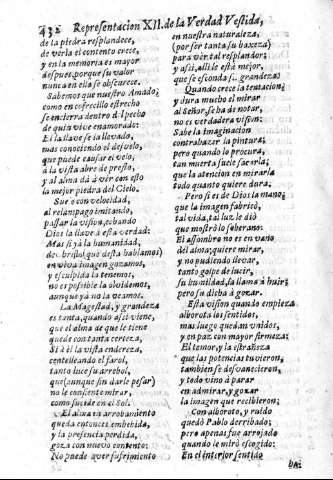 432 Representacion XII. de la Verdad Vestida,
de la piedra resplandece,
de verla el contento crece,
y en la memoria es mayor
despues, porque su valor
nunca en ella se obscurece.
Sabemos que nuestro Amado,
como en cofrecillo estrecho
se encierra dentro del pecho
de quiē vive enamorado:
El la llave se à llevado,
mas conociendo el desvelo,
que puede causar el velo,
à la vista abre de presto,
y al alma dà à ver con esto
la mejor piedra del Cielo.
Sue con velocidad,
al relampago imitando,
passar la visiō, echando
Dios la llave à esta verdad:
Mas si yà la humanidad,
de su brillo (que desta hablamos)
en viva imagen gozamos,
y esculpida la tenemos,
no es possible la olvidemos,
aunque yà no la veamos.
La Magestad, y grandeza
es tanta, quando assi viene,
que el alma de que le tiene
quede con tanta certeza,
Si à èl la vista endereza,
centelleando el farol,
tanto luce su arrebol,
que (aunque sin darle pesar)
no le consiente mirar,
como sucede en el Sol.
El alma en arrobamiento
queda entonces embebida,
y la presencia perdida,
goza con nuevo contento:
No puede aver sufrimiento
en nuestra naturaleza,
(por ser tanta su baxeza)
para vèr tal resplandor;
y assi, alli le està mejor,
que se esconda su grandeza:
Quando crece la tentacion,
y dura mucho el mirar
al Señor, se ha de notar,
no es verdadera visiōn:
Sabe la imaginacion
contrahazer la pintura;
pero quando lo procura,
tan muerta suele sacarla;
que la atencion en mirarla
todo quanto quiere dura.
Pero si es de Dios la mano
que la imagen fabricò,
tal vida, tal luz le diò
que mostrò lo soberano:
El assombro no es en vano
del alma, quiere mirar,
y no pudiendo llevar,
tanto golpe de lucir,
su humildad, la llama à huir;
pero su dicha à gozar.
Esta vision quando empieza
alborota los sentidos,
mas luego quedan unidos,
y en paz con mayor firmeza:
El temor, y la estrañeza
que las potencias tuvieron,
tambien se desvanecieron,
y todo vino à parar
en admirar, y gozar
la imagen que recibieron;
Con alboroto, y ruido
quedò Pablo derribado;
pero apenas fue arrojado
quando le mirò escogido:
En el interior sentido